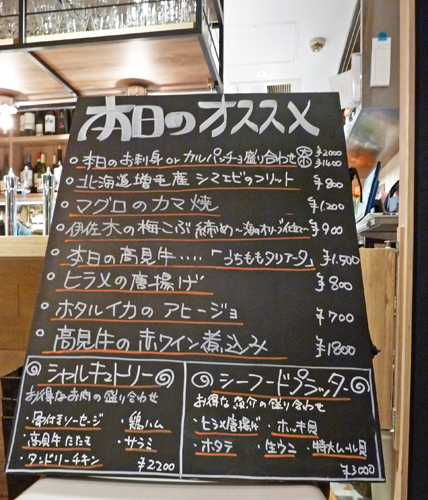 本日のオススメ
本日のお刺身 or カルパッチョ盛り合わせ 大 ¥2000
小 ¥1400
北海道増毛産 シマエビのフリット ¥800
マグロのカマ焼 ¥1200
伊佐木の梅こぶ締め 〜海のオリーブ仕立〜 ¥900
本日の高見牛‥‥「うちももタリアータ」 ¥1,500
ヒラメの唐揚げ ¥800
ホタルイカのアヒージョ ¥700
高見牛の赤ワイン煮込み ¥1800
シャルキュトリー
お得なお肉の盛り合わせ
・骨付きソーセージ ・鶏ハム
・高見牛たたき ・サラミ
・タンドリーチキン ¥2200
シーフードプラッター
お得な魚介の盛り合わせ
・ヒラメ唐揚げ ・ホッキ貝
・ホタテ ・生ウニ ・特大ムール貝
¥3000